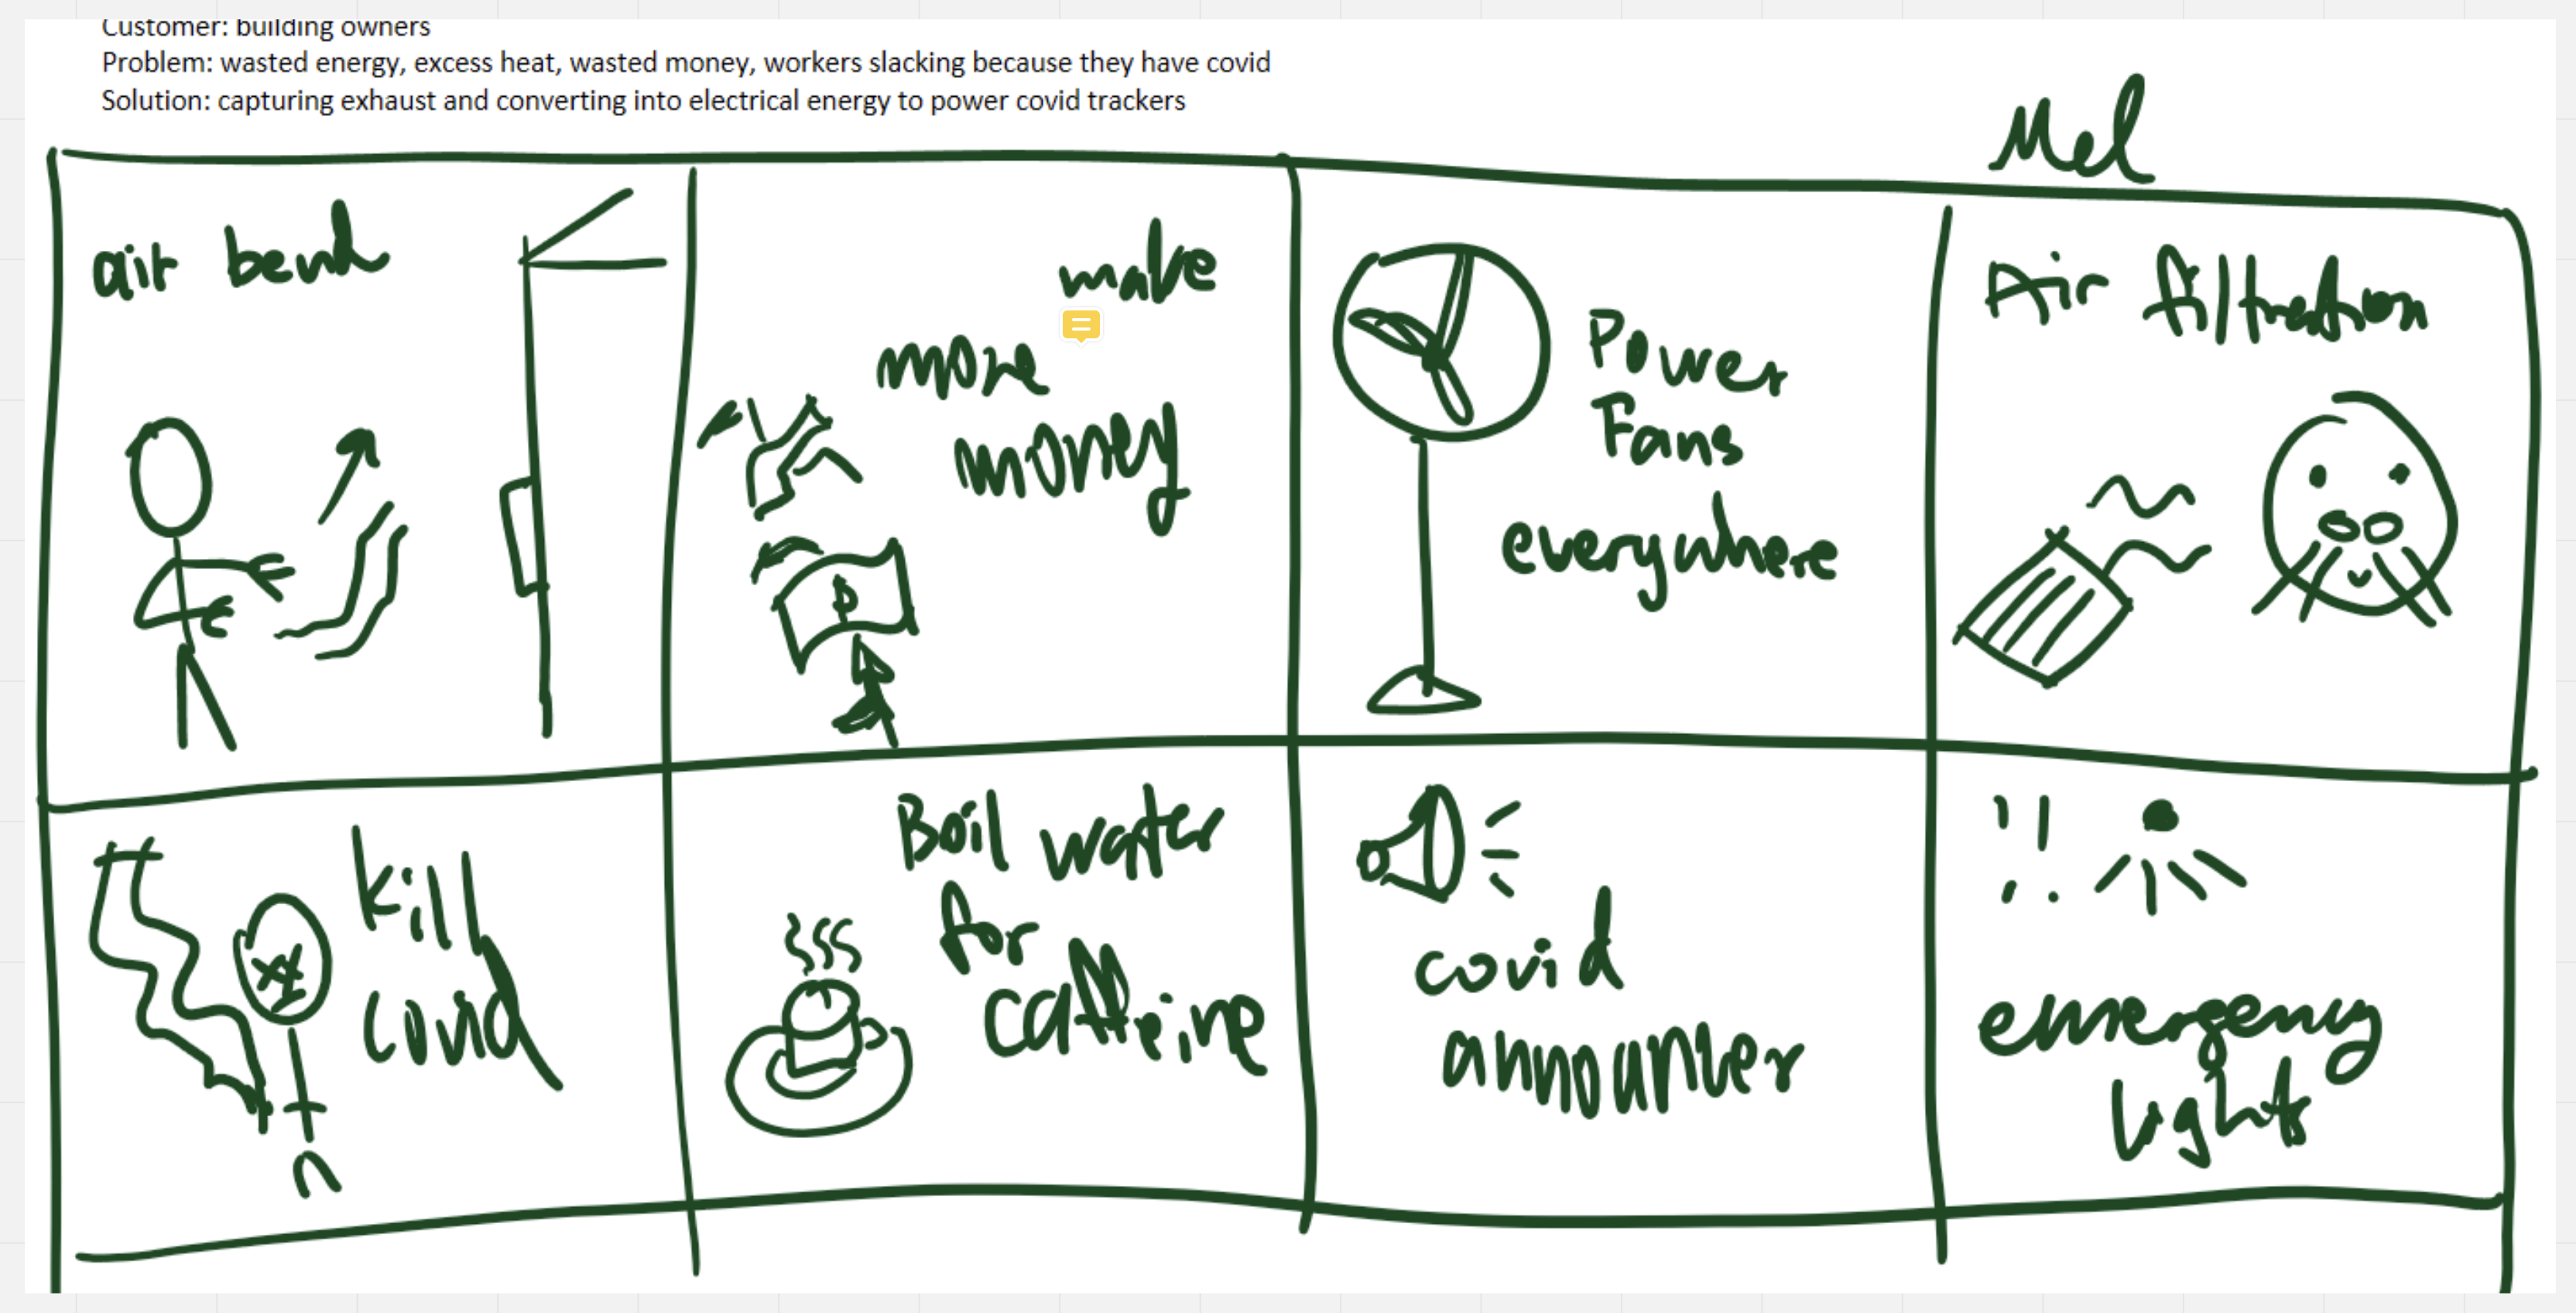 Customer: building owners
Problem: wasted energy, excess heat, wasted money, workers slacking because they have covid
Solution: capturing exhaust and converting into electrical energy to power covid trackers
Mel
air bend
make
more
money
Power
Fans
everywhere
Air filtration
kill
covid
Boil water
for
caffeine
covid
announcer
!!
emergency
lights